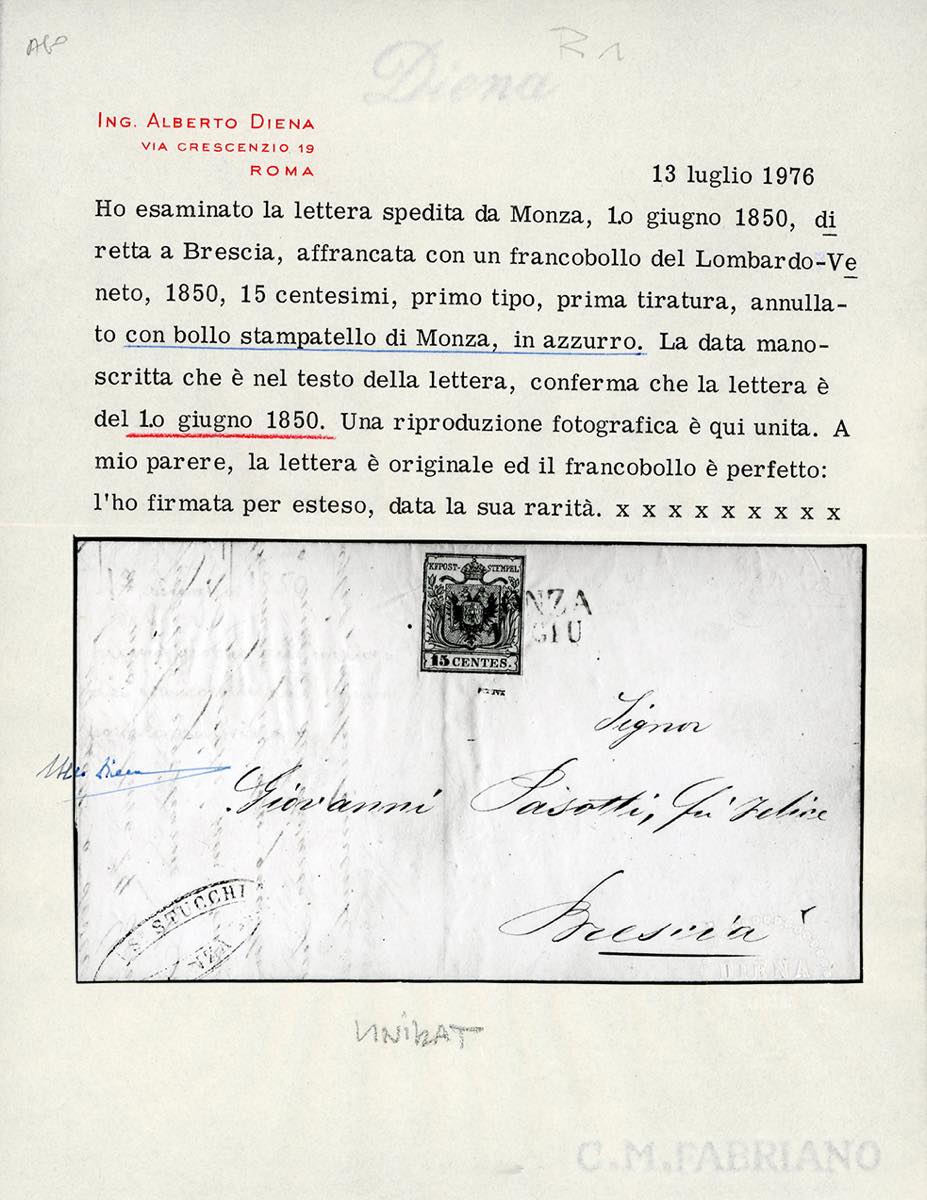 R 1
Diena
ING. ALBERTO DIENA
VIA CRESCENZIO 19
ROMA
13 luglio 1976
Ho esaminato la lettera spedita da Monza, 1.o giugno 1850, di
retta a Brescia, affrancata con un francobollo del Lombardo-Ve
neto, 1850, 15 centesimi, primo tipo, prima tiratura, annulla-
to con bollo stampatello di Monza, in azzurro. La data mano-
scritta che è nel testo della lettera, conferma che la lettera è
del 1.o giugno 1850. Una riproduzione fotografica è qui unita. A
mio parere, la lettera è originale ed il francobollo è perfetto:
l'ho firmata per esteso, data la sua rarità. x x x x x x x x x x
KFPOST-STEMPEL
15 CENTES.
NZA
GIU
Signor
Giovanni Pasotti, fù Felice
Brescia
S. STUCCHI
DIENA
UNIKAT
C.M.FABRIANO